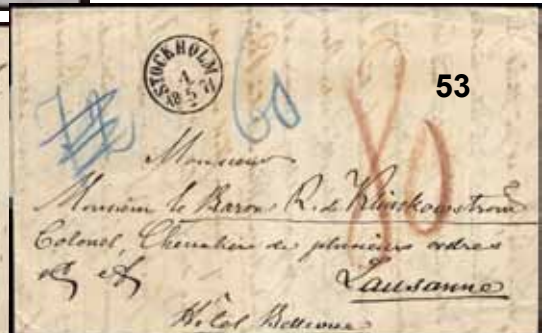 53
STOCKHOLM
1
18 5 71
60
80
Monsieur
Monsieur le Baron R. de Klinckowström
Colonel, Chevalier de plusieurs ordres
Lausanne
Hôtel Bellevue